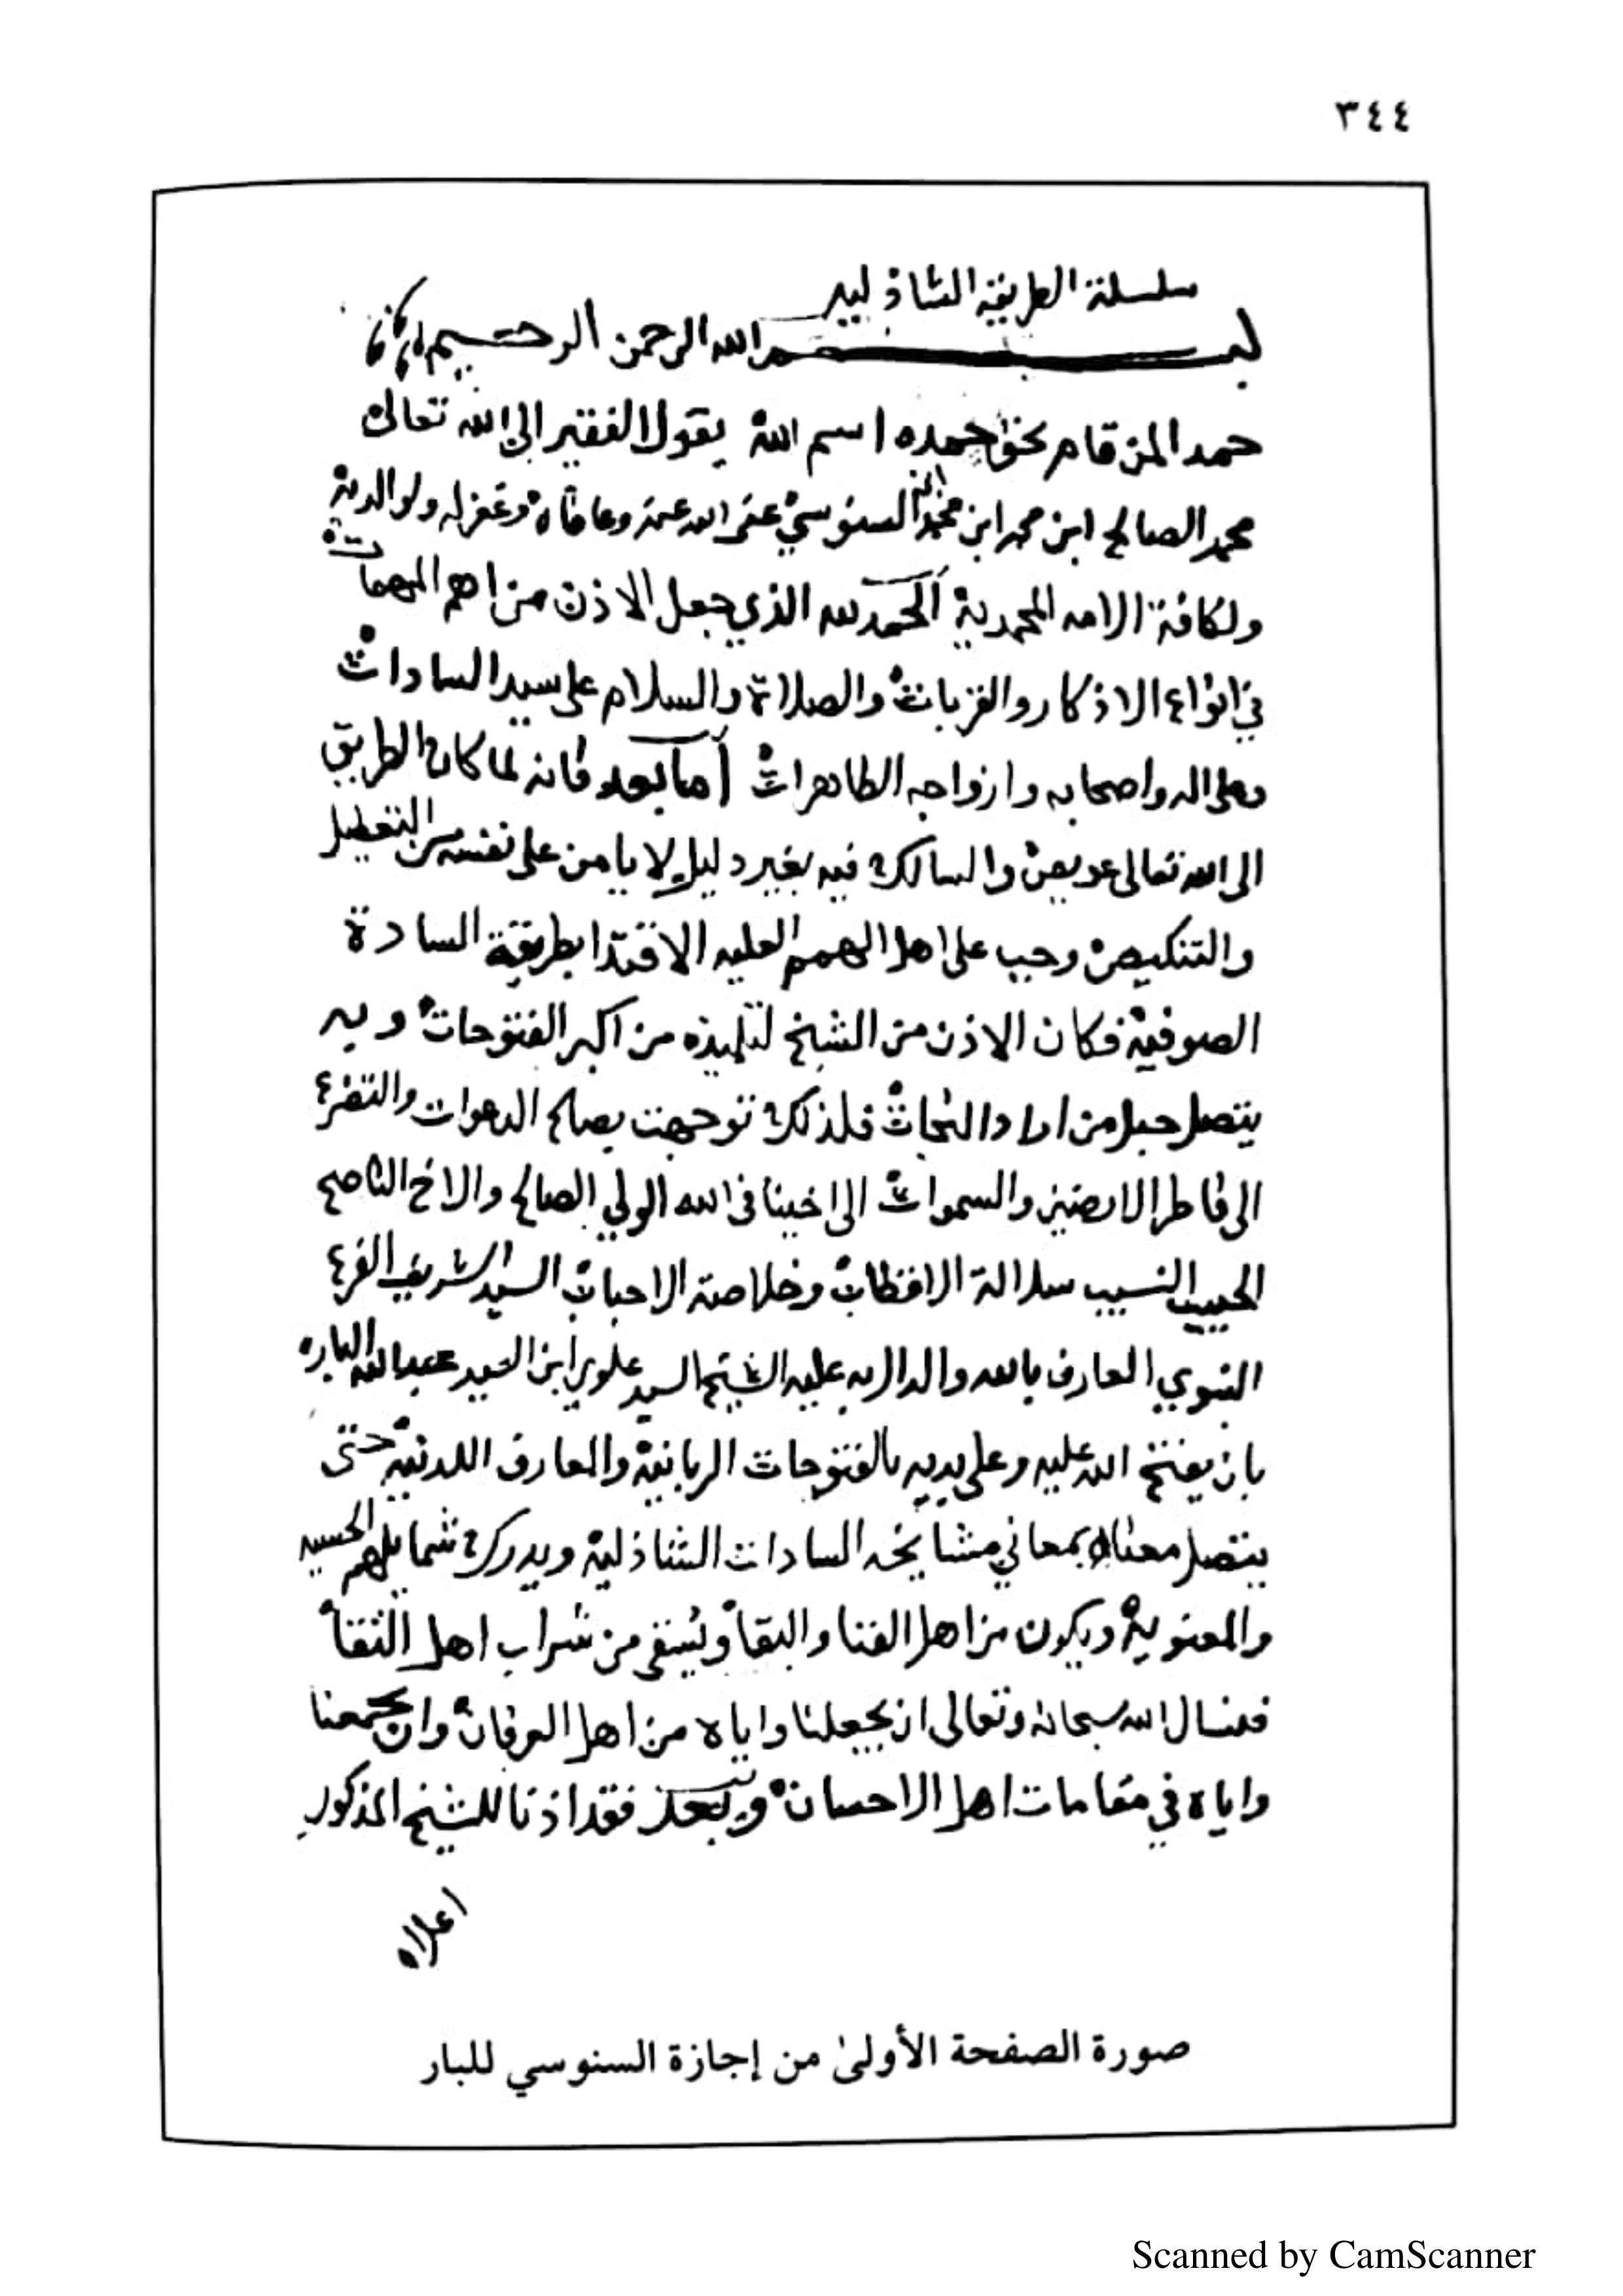 ٣٤٤
سلسلة الطريقة الشاذلية
بسم الله الرحمن الرحيم
حمد المن قام بحق حمده اسم الله يقول الفقير الى الله تعالى
محمد الصالح ابن محمد ابن محمد السنوسي عفى الله عنه وعافاه وغفر له ولوالديه
ولكافة الامه المحمدية الحمد لله الذي جعل الاذن من اهم المهمات
في انواع الاذكار والقربات والصلاة والسلام على سيد السادات
وعلى اله واصحابه وازواجه الطاهرات أما بعد فانه لما كان الطريق
الى الله تعالى عويص والسالك فيه بغير دليل لا يامن على نفسه من التعطيل
والتنكيص وجب على اهل الهمم العليه الاقتدا بطريقة السادة
الصوفية فكان الاذن من الشيخ لتلميذه من اكبر الفتوحات وبه
يتصل حبل من اراد النجاة فلذلك توجهت بصالح الدعوات والتضرع
الى فاطر الارضين والسموات الى اخينا في الله الولي الصالح والاخ الناصح
الحبيب النسيب سلالة الاقطاب وخلاصة الاحباب السيد الشريف الفرع
النبوي العارف بالله والدال به عليه الشيخ السيد علوي ابن السيد عبدالله الباره
بان يفتح الله عليه وعلى يديه بالفتوحات الربانية والمعارف اللدنية حتى
يتصل معناه بمعاني مشايخه السادات الشاذلية ويدرك شمايلهم الحسيه
والمعنوية ويكون من اهل الفنا والبقا ويسقى من شراب اهل التقا
فنسال الله سبحانه وتعالى ان يجعلنا واياه من اهل العرفان وان يجمعنا
واياه في مقامات اهل الاحسان وبعد فقد اذنا للشيخ المذكور
اعلاه
صورة الصفحة الأولىٰ من إجازة السنوسي للبار
Scanned by CamScanner